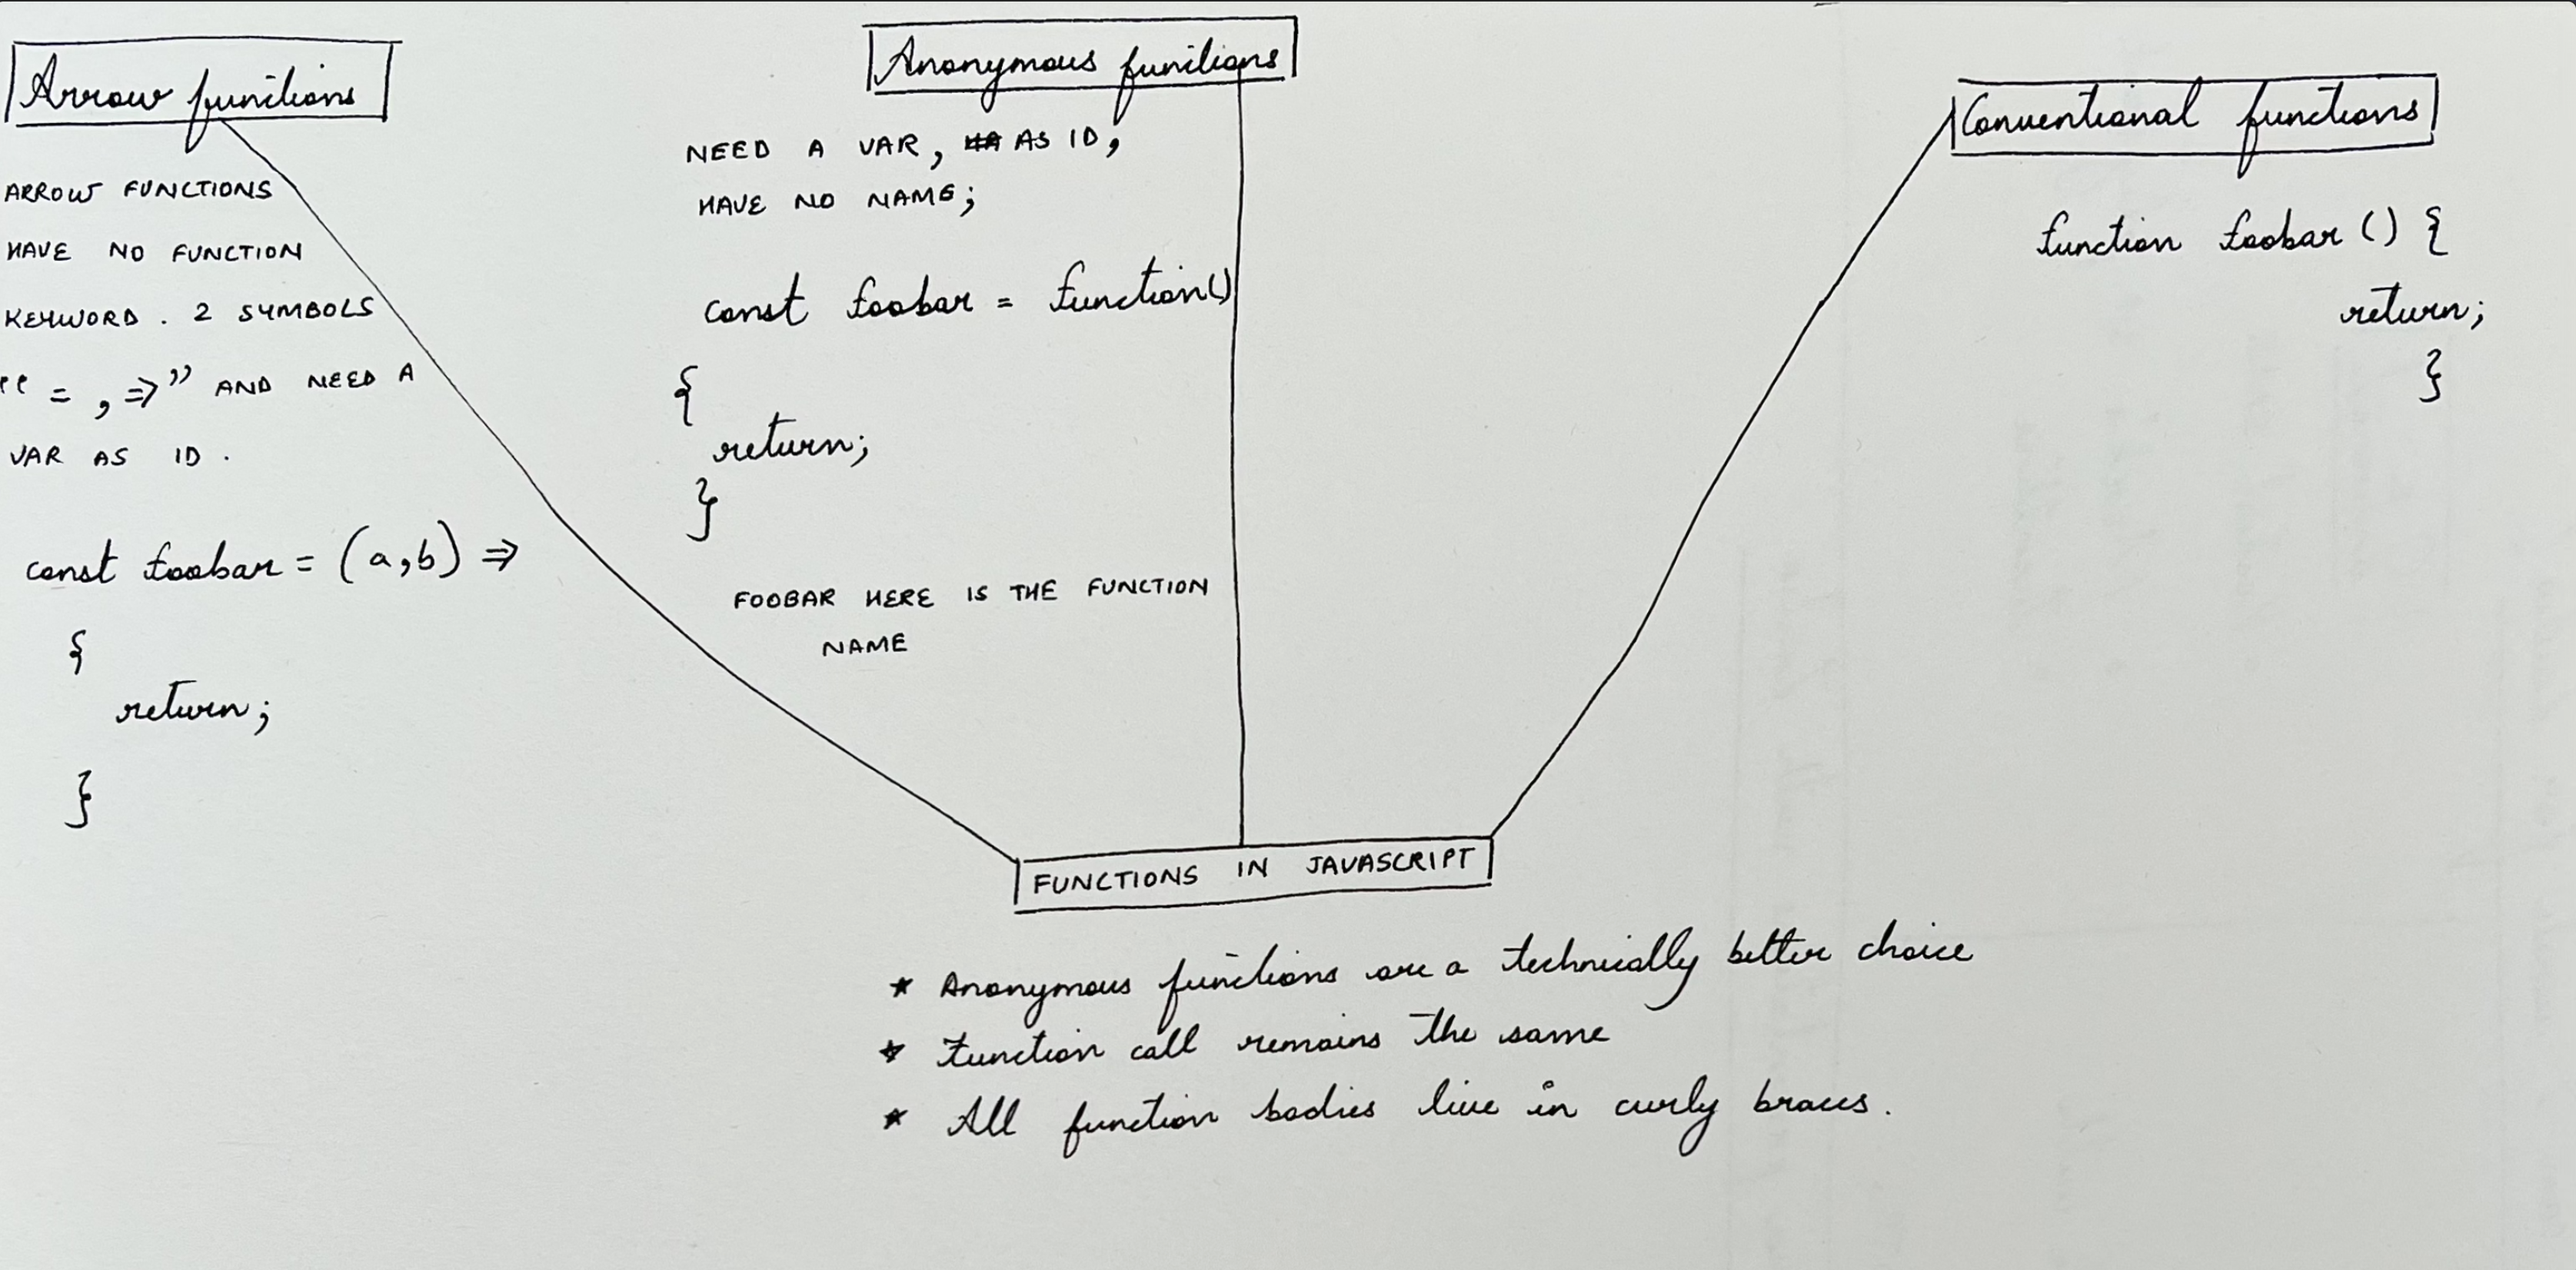 Arrow functions
ARROW FUNCTIONS
HAVE NO FUNCTION
KEYWORD. 2 SYMBOLS
"= , =>" AND NEED A
VAR AS ID.
const foobar = (a,b) =>
{
return;
}
Anonymous functions
NEED A VAR, AS ID,
HAVE NO NAME;
const foobar = function()
{
return;
}
FOOBAR HERE IS THE FUNCTION
NAME
Conventional functions
function foobar () {
return;
}
FUNCTIONS IN JAVASCRIPT
* Anonymous functions are a technically better choice
* Function call remains the same
* All function bodies live in curly braces.